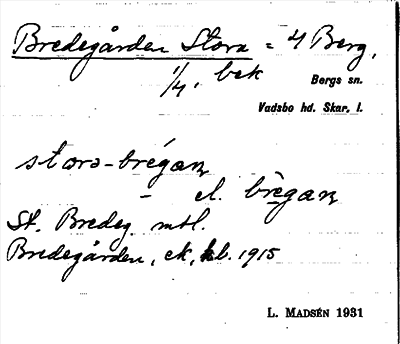 Bredegården Stora = 4 Berg,
1/4, bek
Bergs sn.
Vadsbo hd. Skar. l.
storə-brégaɳ
- el. brègaɳ
St. Bredeg. mtl.
Bredegården, ek, kb. 1915
L. MADSÉN 1931